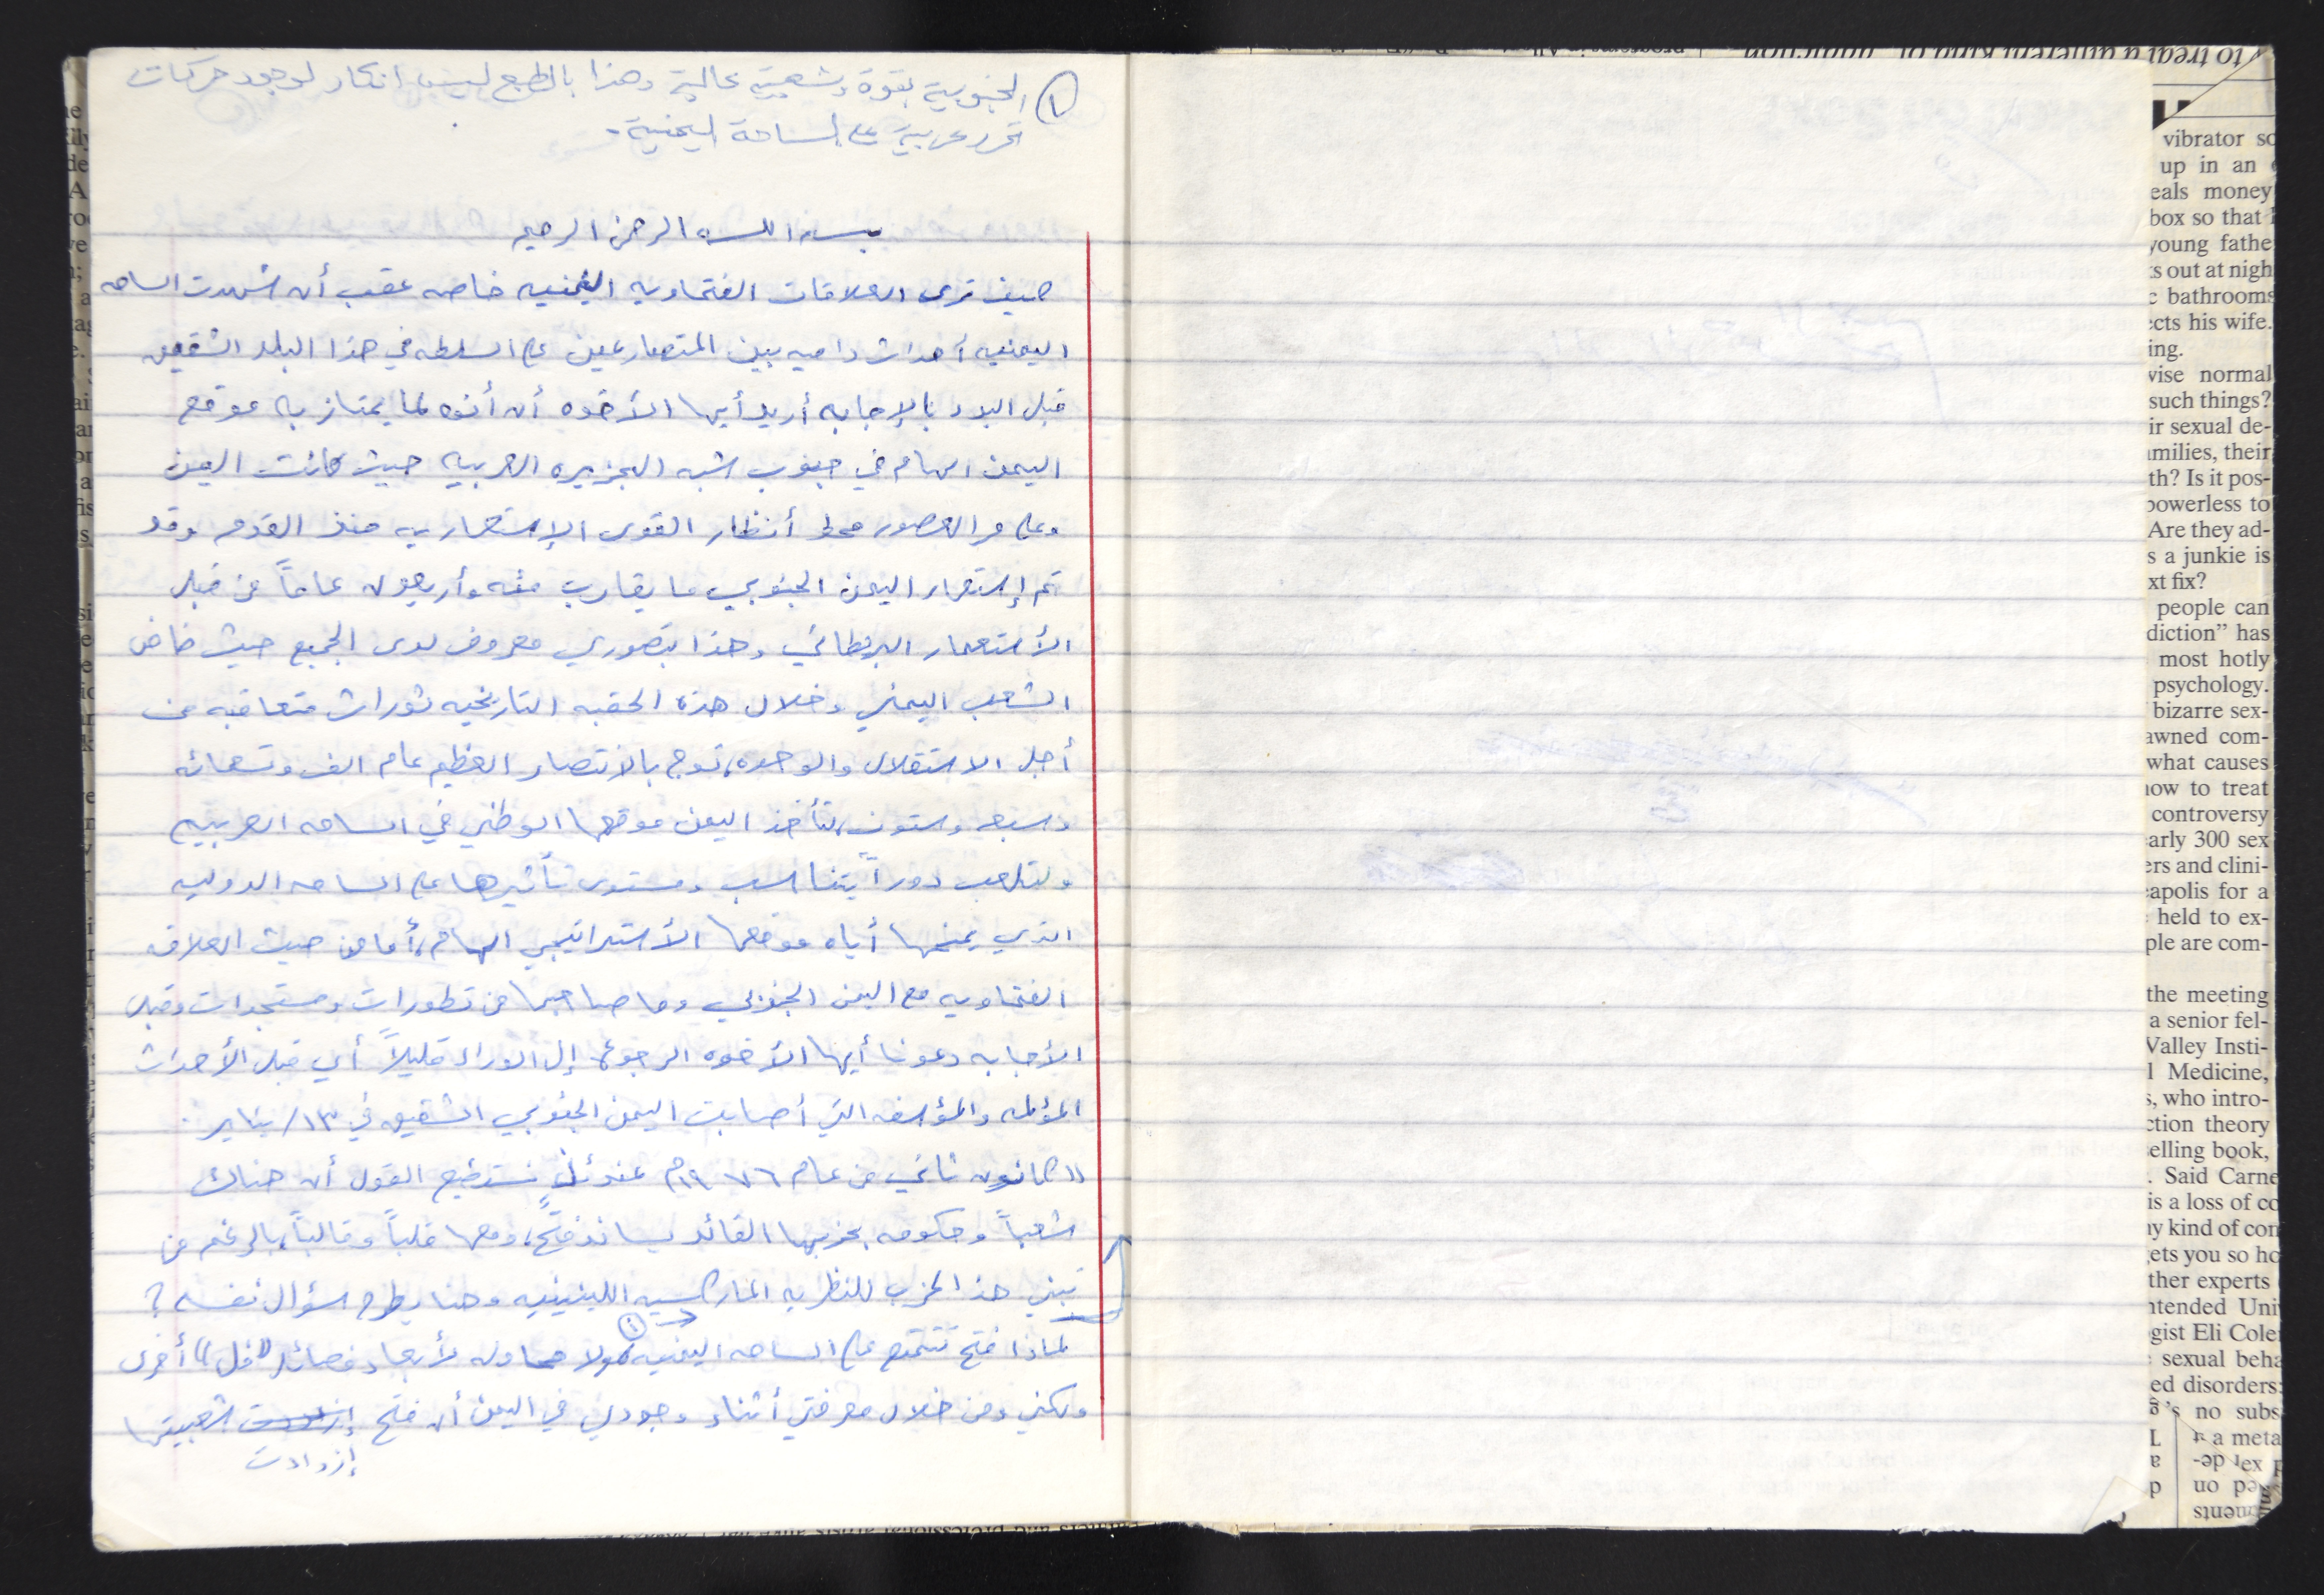 ① الجنوبية بقوة وشعبية عالية وهذا بالطبع ليس انكار لوجود حركات
تحرر عربية على الساحة اليمنية.
بسم الله الرحمن الرحيم
كيف ترى العلاقات الفتحاويه اليمنيه خاصه عقب أن شهدت الساحه
اليمنيه أحداث داميه بين المتصارعين على السلطه في هذا البلد الشقيق
قبل البدء بالإجابه أريد أيها الأخوه أن أنوه لما يمتاز به موقع
اليمن الهام في جنوب شبه الجزيره العربيه حيث كانت اليمن
وعلى مر العصور محط أنظار القوى الإستعماريه منذ القدم وقد
تم إستعمار اليمن الجنوبي ما يقارب مئه وأربعون عاماً من قبل
الأستعمار البريطاني وهذا بتصوري معروف لدى الجميع حيث خاض
الشعب اليمني وخلال هذه الحقبه التاريخيه ثورات متعاقبه من
أجل الاستقلال والوحده، توج بالانتصار العظيم عام الف وتسعمائه
وسبعه وستون، لتأخذ اليمن موقعها الوطني في الساحه العربيه
ولتلعب دوراً يتناسب ومستوى تأثيرها على الساحه الدوليه
الذي يمنحها أياه موقعها الأستراتيجي الهام، أما من حيث العلاقه
الفتحاويه مع اليمن الجنوبي وما صاحبها من تطورات ومستجدات وقبل
الأجابه دعونا أيها الأخوه الرجوع إلى الوراء قليلاً أي قبل الأحداث
المؤلمه والمؤسفه التي أصابت اليمن الجنوبي الشقيق في ١٣/يناير
"كانون ثاني من عام ١٩٧٦م عندئذٍ نستطيع القول أن هناك
شعباً وحكومه بحزبها القائد يساند فتح، ومعها قلباً وقالباً، بالرغم من
تبني هذا الحزب للنظريه الماركسيه اللينينيه وهنا يطرح سؤال نفسه؟
لماذا فتح تتمتع على الساحه اليمنيه ① ولا محاوله لأبعاد فصائل "فل" أخرى
ولكني ومن خلال معرفتي أثناء وجودي في اليمن أن فتح إزدادت شعبيتها
إزدادت
vibrator so
up in an
eals money
box so that
young fathe
s out at nigh
c bathrooms
cts his wife.
ing.
wise normal
such things?
ir sexual de-
amilies, their
th? Is it pos-
powerless to
Are they ad-
s a junkie is
xt fix?
people can
diction" has
most hotly
psychology.
bizarre sex-
awned com-
what causes
now to treat
controversy
early 300 sex
ers and clini-
eapolis for a
held to ex-
ple are com-
the meeting
a senior fel-
Valley Insti-
l Medicine,
s, who intro-
ction theory
elling book,
. Said Carne
is a loss of co
ny kind of con
ets you so ho
ther experts
ntended Uni
gist Eli Cole
sexual beha
ed disorders:
's no subs
a meta